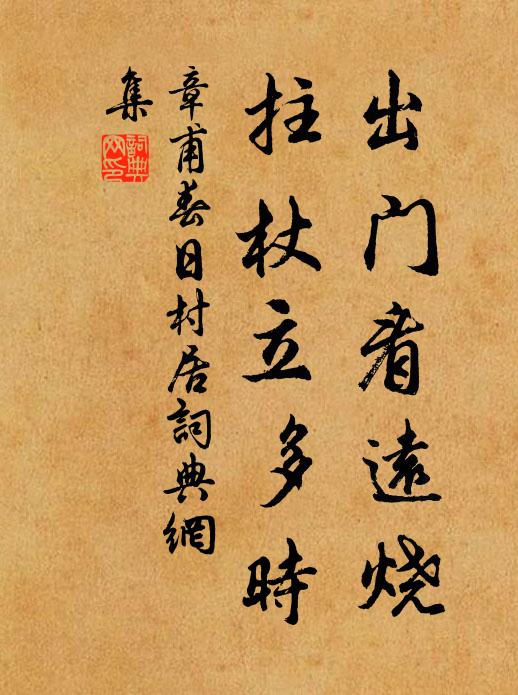 出门看遠烧
拄杖立多時
章甫春日村居詞典網
集
詞典
网印